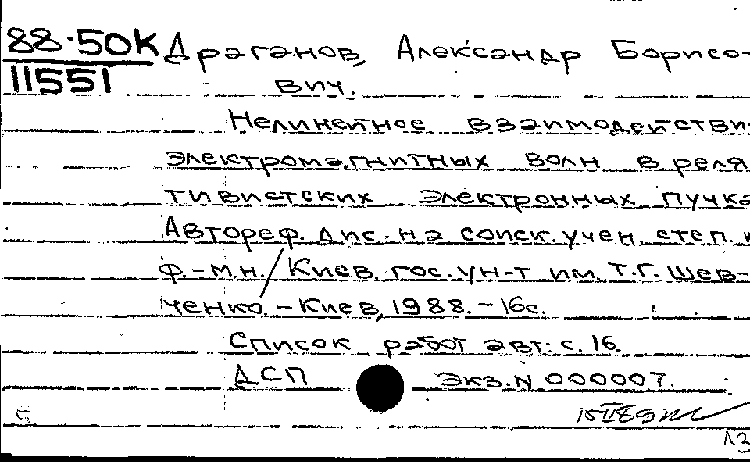 88-50К Драганов, Александр Борисо-
11551 вич.
Нелинейное взаимодействи
электромагнитных волн в реля
тивистских электронных пучка
Автореф. дис. на соиск. учен. степ. к
ф.-м.н. / Киев. гос. ун-т им. Т.Г. Шев-
ченко. - Киев, 1988. - 16с.
Список работ авт.: с. 16.
ДСП Экз. N 000007.